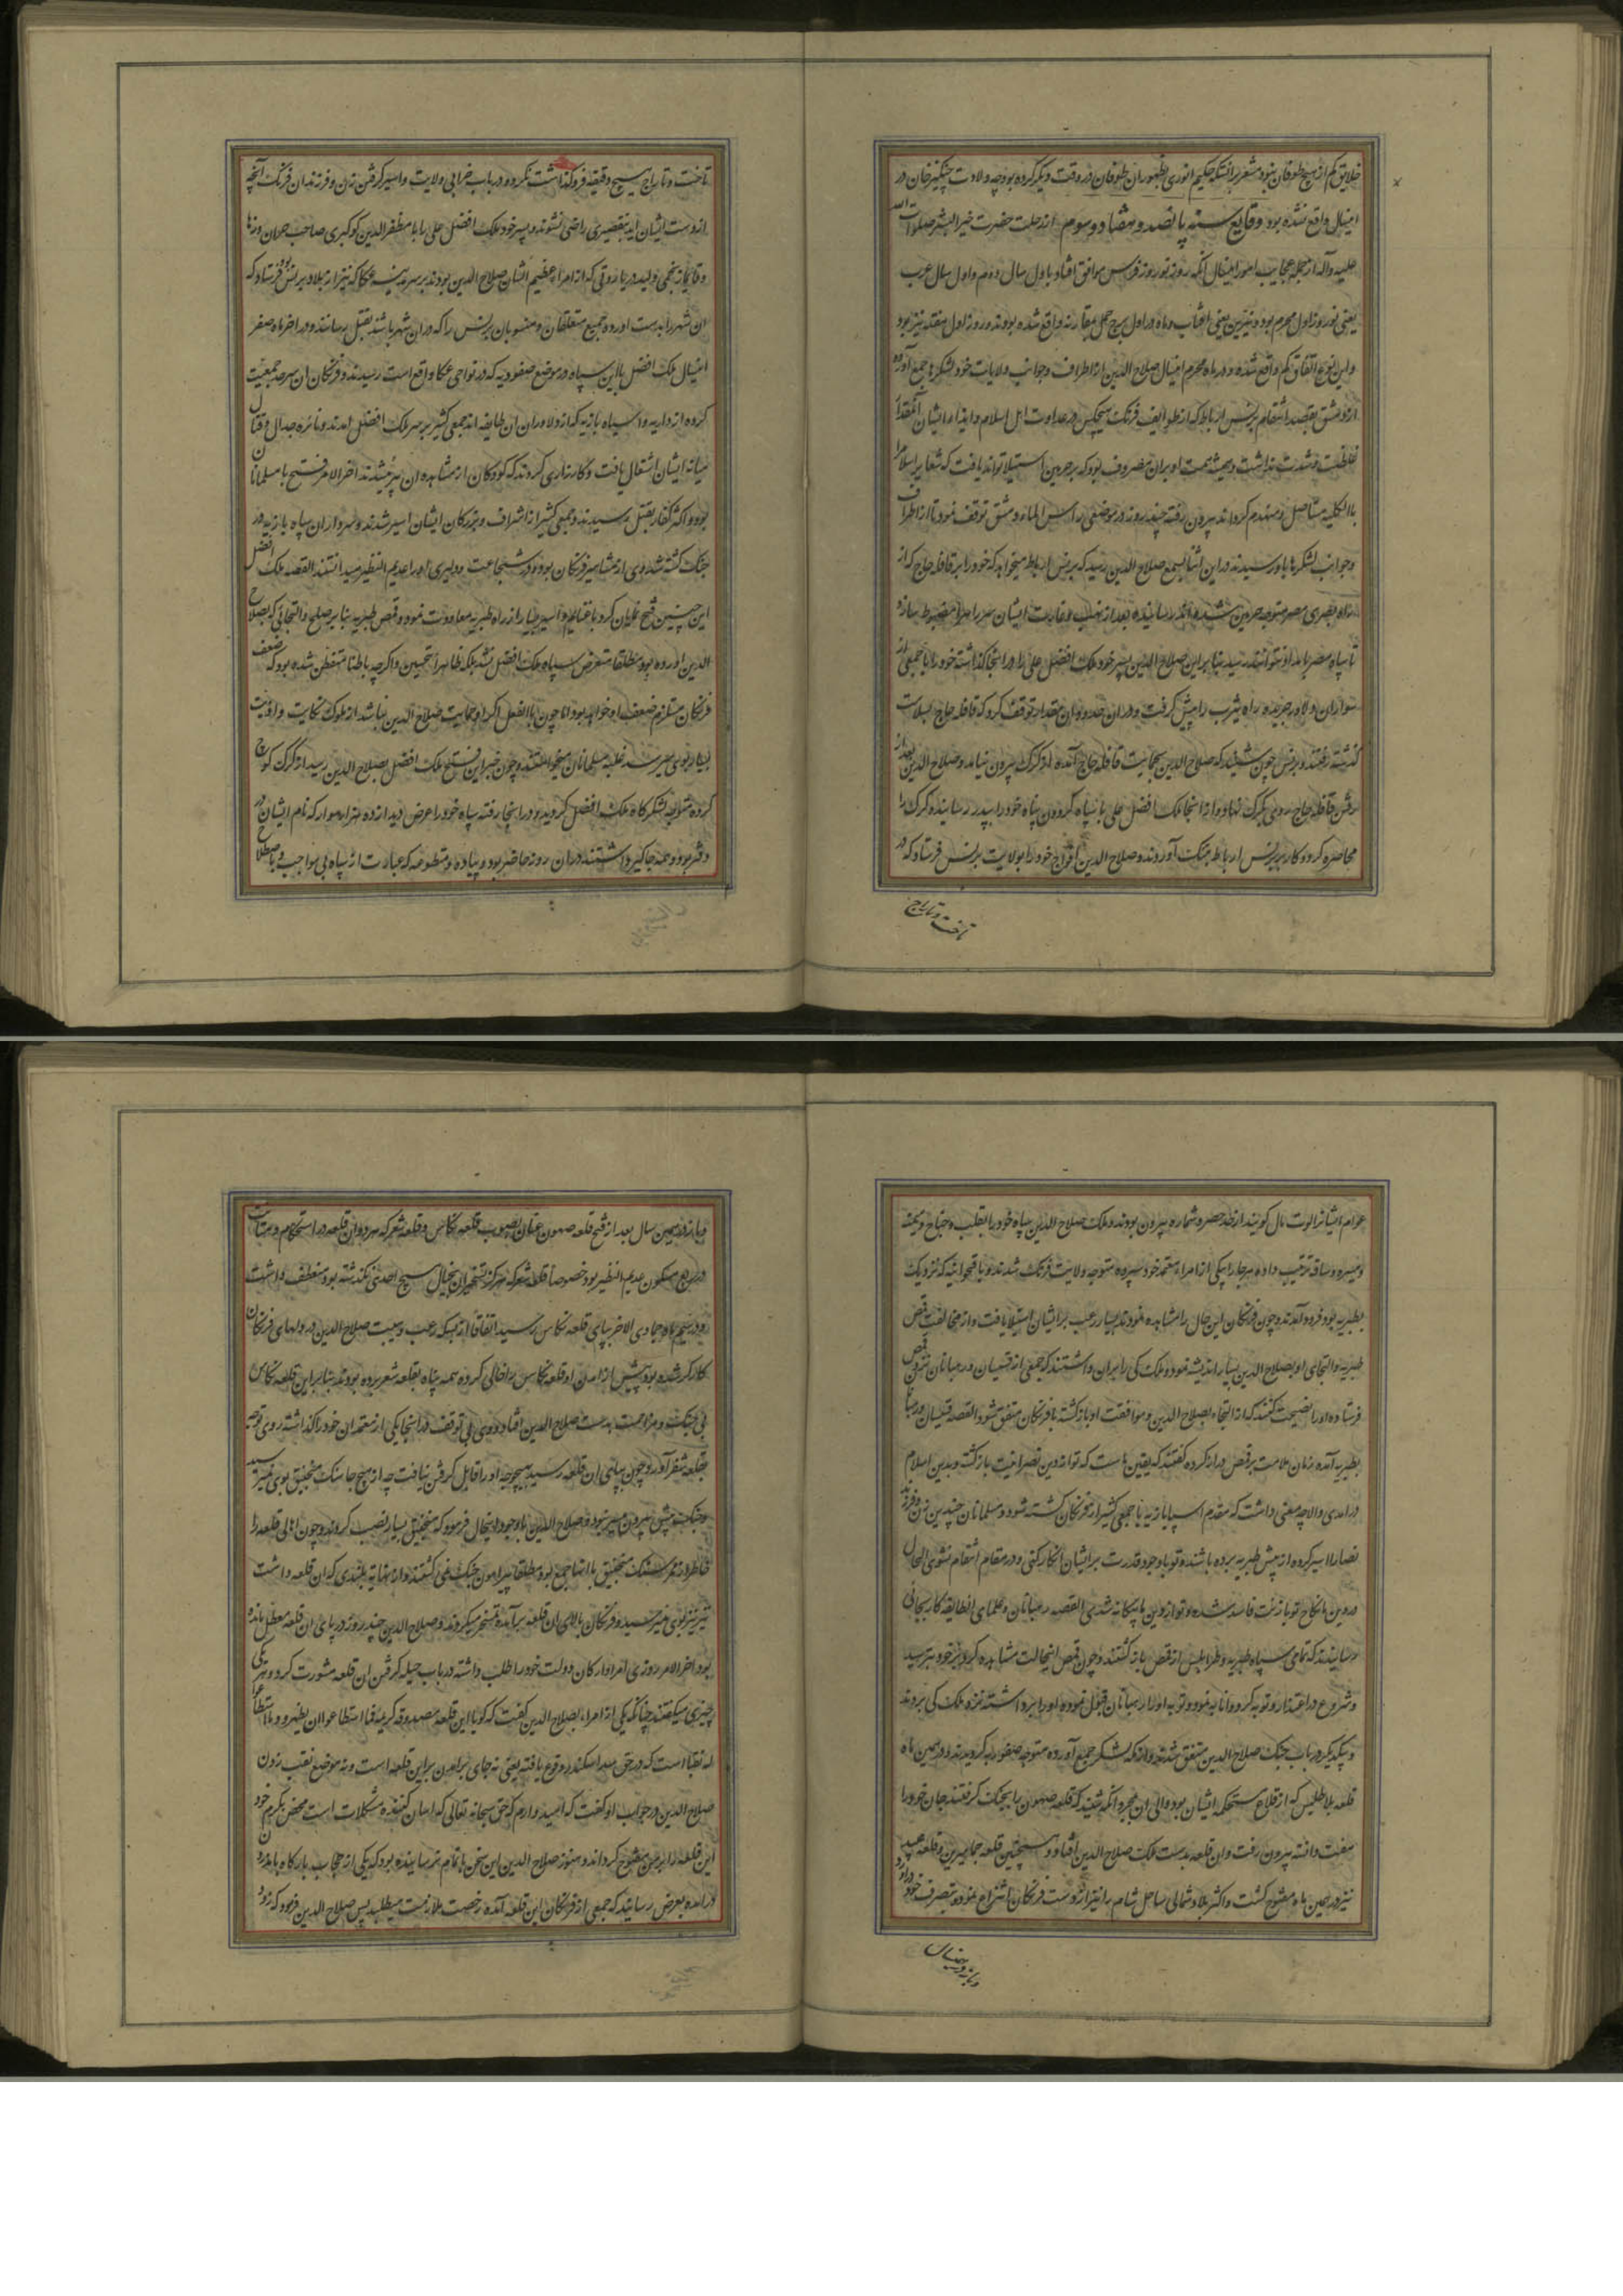 خلایق کم از هیچ طوفان نبود و مشعر برانستکه حکیم انوری بظهور ان طوفان در وقت دیگر کرده بود چه ولادت چنگیز خان در
امثال واقع نشده بود وقایع سنه پانصد و هفتاد و سوم از رحلت حضرت خیر البشر صلوات الله
علیه و آله از جمله عجایب امور اینسال انکه روز نوروز فرس موافق افتاد با اول سال روم و اول سال عرب
یعنی نوروز اول محرم بود و نیرین یعنی افتاب و ماه در اول برج حمل مقارنه واقع شده بودند و روز اول هفته نیز بود
و این نوع اتفاق کم واقع شده و در ماه محرم اینسال صلاح الدین از اطراف و جوانب ولایات خود لشکرها جمع آورده
از دمشق بقصد انتقام برنس ارباط که از طوایف فرنک هیچکس در عداوت اهل اسلام و ایذاء ایشان آنمقدار
غلظت و شدت نداشت و همیشه همت او بران مصروف بود که بر حرمین استیلا تواند یافت که شعایر اسلام را
بالکلیه مستاصل و منهدم کرداند بیرون رفته چند روز در موضعی راس الماء دمشق توقف نمود تا از اطراف
و جوانب لشکرها باو رسیدند در این اثنا بسمع صلاح الدین رسید که برنس ارباط میخواهد که خود را بر قافله حاج که از
راه بصری مصر متوجه حرمین شده اند رسانیده بعد از نهب و غارت ایشان سر راه را مضبوط سازد
تا سپاه مصر بامداد نتوانند رسید بنابراین صلاح الدین پسر خود ملک افضل علی را در انجا کذاشته خود را با جمعی از
سواران دلاور جریده راه یثرب را پیش کرفت و دران حدود ان مقدار توقف کرد که قافله حاج بسلامت
کذشته رفتند و برنس چون شنید که صلاح الدین بحمایت قافله حاج آمده از کرک بیرون نیامد و صلاح الدین بعد از
رفتن قافله حاج روی بکرک نهاد و از انجا ملک افضل علی با سپاه کردون پناه خود را بپدر رسانیده کرک را
محاصره کرد و کار بر برنس ارباط بتنک آوردند و صلاح الدین افواج خود را بولایت برنس فرستاد که در
تاخت و تاراج
تاخت و تاراج هیچ دقیقه فروکذاشت نکرده در باب خرابی ولایت و اسیر کرفتن زن و فرزندان فرنک آنچه
از دست ایشان اید بتقصیری راضی نشوند و پسر خود ملک افضل علی را با مظفر الدین کوکبری صاحب حران و رها
و قایماز نجمی و یلدرم یاروقی که از امراء عظیم الشان صلاح الدین بودند بر سر مدینه عکا که نیز از بلاد برنس بود فرستاد که
ان شهر را بدست اورده جمیع متعلقان و منسوبان برنس را که دران شهر باشند بقتل رسانند و در اخر ماه صفر
اینسال ملک افضل با این سپاه در موضع صفوریه که در نواحی عکا واقع است رسیدند و فرنکان ان سرحد جمعیت
کرده از داریه و اسپاه بازیه که از دلاوران ان طایفه اند جمعی کثیر بر سر ملک افضل امدند و نائره جدال و قتال
میانه ایشان اشتعال یافت و کارزاری کردند که کودکان از مشاهده ان پیر میشدند اخر الامر فتح با مسلمانان
بود و اکثر کفار بقتل رسیدند و جمعی کثیر از اشراف و بزرکان ایشان اسیر شدند و سردار ان سپاه بازیه در
جنک کشته شد و وی از مشاهیر فرنکان بود و در شجاعت و دلیری او را عدیم النظیر میدانستند القصه ملک افضل
این چنین فتح نمایان کرد و با غنایم و اسیر بسیار از راه طبریه معاودت نمود و قمص طبریه بنابر صلح و التجائی که بصلاح
الدین اورده بود مطلقا متعرض سپاه ملک افضل نشد بلکه ظاهرا تحسین و اکرچه باطنا متفطن شده بود که ضعف
فرنکان مستلزم ضعف او خواهد بود اما چون بالفعل اکر او حمایت صلاح الدین نباشد از ملوک نکایت و اذیت
بسیار بوی میرسد غلبه مسلمانان میخواستند و چون خبر این فتح ملک افضل بصلاح الدین رسید از کرک کوچ
کرده متوجه لشکرکاه ملک افضل کردید و در انجا رفته سپاه خود را عرض دید از ده هزار سوار که نام ایشان در
دفتر بود و همه جاکیر داشتند دران روز حاضر بود و پیاده و متطوعه که عبارت از سپاه بی مواجب و باصطلاح
عوام ایشانرا الوت مال کویند از حد حصر و شماره بیرون بودند و ملک صلاح الدین سپاه خود را بقلب و جناح و میمنه
و میسره و ساقه ترتیب داده هر جا را بیکی از امراء معتمد خود سپرده متوجه ولایت فرنک شدند و باقحوانیه که نزدیک
بطبریه بود فرود آمدند و چون فرنکان این حال را مشاهده نمودند بسیار رعب بر ایشان استیلا یافت و از مخالفت قمص
طبریه و التجای او بصلاح الدین بسیار اندیشه نمود و ملک کی را بران داشتند که جمعی از قسیسان و رهبانان نزد قمص
فرستاده او را نصیحت کنند که از التجاء بصلاح الدین و موافقت او بازکشته با فرنکان متفق شود القصه قسیسان و رهبانان
بطبریه آمده زبان ملامت بر قمص دراز کرده کفتند که یقین ماست که تو از دین نصرانیت بازکشته و بدین اسلام
درامدی والا چه معنی داشت که مقدم اسپاه بازیه با جمعی کثیر از فرنکان کشته شود و مسلمانان چندین زن و فرزند
نصارا اسیر کرده از پیش طبریه برده باشند و تو با وجود قدرت بر ایشان انکار نکنی و در مقام انتقام نشوی الحال
در دین ما نکاح تو با زنت فاسد شده و تو از دین ما بیکانه شدی القصه رهبانان و علمای انطایفه کار بجائی
رسانیدند که تمامی سپاه طبریه و طرابلس از قمص بازکشتند و چون قمص اینحالت مشاهده کرد بر خود بترسید
و شروع در اعتذار و توبه کرد و انابه نمود و توبه او را رهبانان قبول نموده او را برداشته نزد ملک کی بردند
و یکدیکر در باب جنک صلاح الدین متفق شدند و از عکه لشکر جمع آورده متوجه صفوریه کردیدند و در همین ماه
قلعه بلاطلیس که از قلاع مستحکمه ایشان بود والی ان بمجرد آنکه شنید که قلعه صهیون را بجنک کرفتند جان خود را
مفت دانسته بیرون رفت و ان قلعه بدست ملک صلاح الدین افتاد و همچنین قلعه جماهیرین و قلعه عیدو
نیز در همین ماه مفتوح کشت و اکثر بلاد شمالی ساحل شام را نیز از دست فرنکان انتزاع نموده بتصرف خود دراورد
و باز در همین سال
و باز در همین سال بعد از فتح قلعه صهیون عنان بصوب قلعه بکاس و قلعه شغر که هر دو ان قلعه در استحکام و متانت
در ربع مسکون عدیم النظیر بود خصوصا قلعه شغر که هرکز تسخیر ان بخیال هیچ احدی نکذشته بود منعطف داشت
و در ششم ماه جمادی الاخر بپای قلعه بکاس رسید اتفاقا از بسکه رعب و هیبت صلاح الدین در دلهای فرنکان
کارکر شده بود پیش از امدن او قلعه بکاس را خالی کرده همه پناه بقلعه شغر برده بودند بنابراین قلعه بکاس
بی جنک و مزاحمت بدست صلاح الدین افتاد و وی بی توقف در انجا یکی از معتمدان خود را کذاشته روی توجه
بقلعه شغر آورد و چون بپای ان قلعه رسید بهیچ وجه او را قابل کرفتن نیافت چه از هیچ جا سنک منجنیق بوی نمیرسید
و جنک پیش نمیرفت و صلاح الدین با وجود اینحال فرمود که منجنیق بسیار نصب کردند و چون اهالی قلعه را
خاطر از ممر سنک منجنیق بالتمام جمع بود مطلقا پیرامون جنک نمی کشتند و از نهایه بلندی که ان قلعه داشت
تیر نیز بوی نمیرسید و فرنکان بالای ان قلعه برآمده تمسخر میکردند و صلاح الدین چند روز در پای ان قلعه معطل مانده
بود اخر الامر روزی امرا و ارکان دولت خود را طلب داشته در باب حیله کرفتن ان قلعه مشورت کرد و هر یکی
چیزی میکفتند چنانکه یکی از امراء بصلاح الدین کفت که کویا این قلعه مصدوقه کریمه فما اسطاعوا ان یظهروه و ما استطاعوا
له نقبا است که در حق سد اسکندر وقوع یافته یعنی نه جای برامدن بر این قلعه است و نه موضع نقب زدن
صلاح الدین در جواب او کفت که امیدوارم که حق سبحانه تعالی که اسان کننده مشکلات است محض بکرم خود
این قلعه را بر من مفتوح کرداند و هنوز صلاح الدین این سخن باتمام نرسانیده بود که یکی از حجاب بارکاه با مژده
درامده بعرض رسانید که جمعی از فرنکان این قلعه آمده رخصت ملازمت میطلبند پس صلاح الدین فرمود که زود